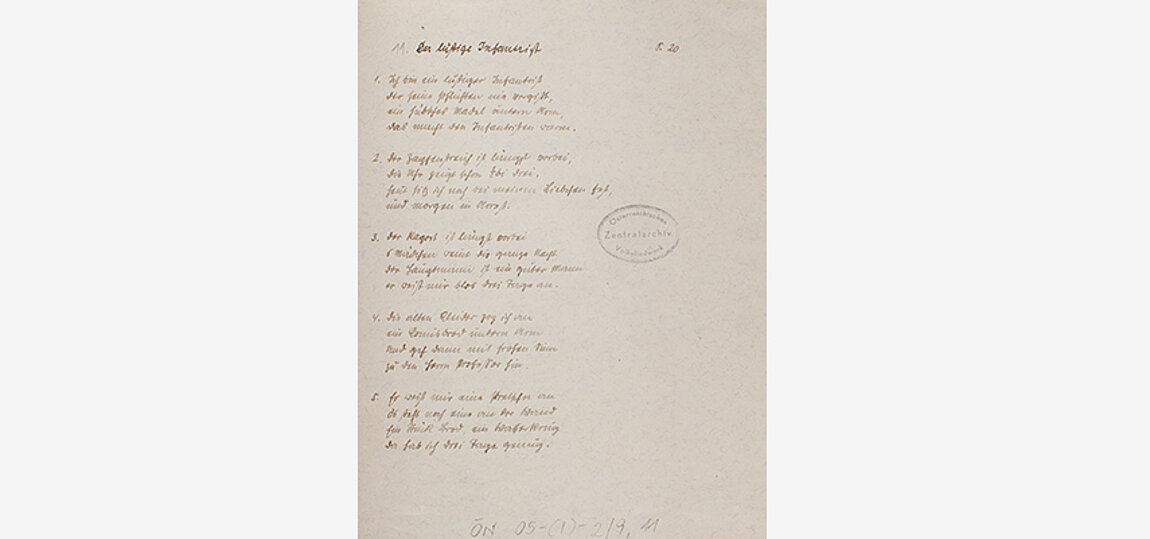 11. Der lustige Infantrist
S. 20
1. Ich bin ein lustiger Infantrist
der seine Pflichten nie vergißt,
ein hübsches Madel untern Arm,
das macht den Infantristen warm.
2. Der Zapfenstreich ist längst vorbei,
die Uhr zeigt schon bei drei.
heut sitz ich noch bei meinem Liebchen fest,
und morgen in Arrest.
3. Der Raport ist längst vorbei
's Mädchen weint die ganze Nacht
der Hauptmann ist ein guter Mann
er weißt mir blos drei Tage an.
4. Die alten Kleider zog ich an
ein Comisbrod untern Arm
Und geh dann mit frohen Sinn
zu den Herrn Professor hin.
5. Er weißt mir eine an
Es steht noch eine an der Wand
Ein Stückl Brod, ein Wasserkrug
da hab ich drei Tage genug.
Österreichisches
Zentralarchiv
Volksliedwerk
ÖN 05-(1)-2/9, 11